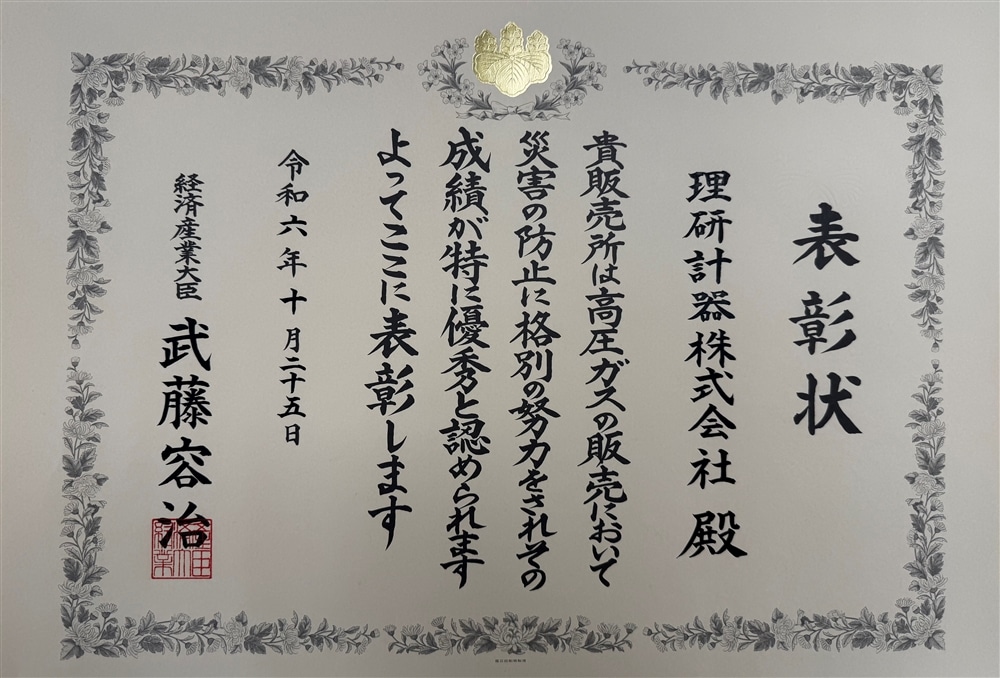 表彰状
理研計器株式会社 殿
貴販売所は高圧ガスの販売において
災害の防止に格別の努力をされその
成績が特に優秀と認められます
よってここに表彰します
令和六年十月二十五日
経済産業大臣 武藤容治